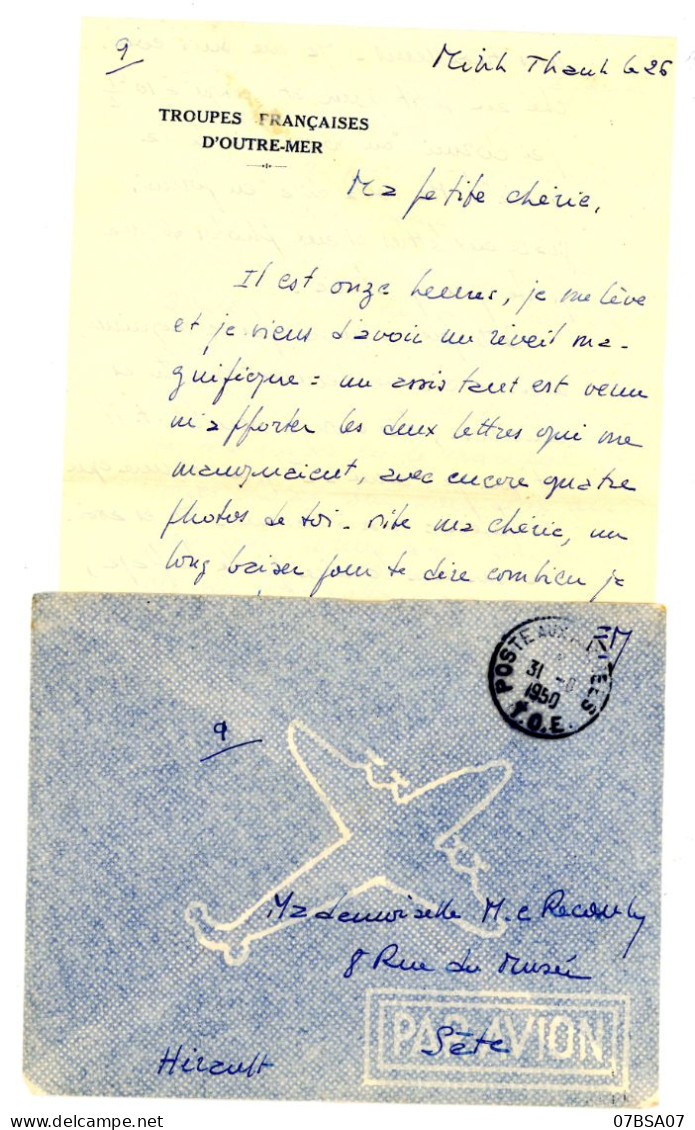 9
Minh Thanh le 26
TROUPES FRANÇAISES
D'OUTRE-MER
Ma petite chérie,
Il est onze heures, je me lève
et je viens d'avoir un réveil ma-
gnifique = un assistant est venu
m'apporter les deux lettres qui me
manquaient, avec encore quatre
photos de toi. Vite ma chérie, un
long baiser pour te dire combien je
FM
POSTE AUX ARMEES
31
1950
T.O.E.
9
Mademoiselle M.C
8 Rue du Musée
PAR AVION
Sète
Hérault
07BSA07